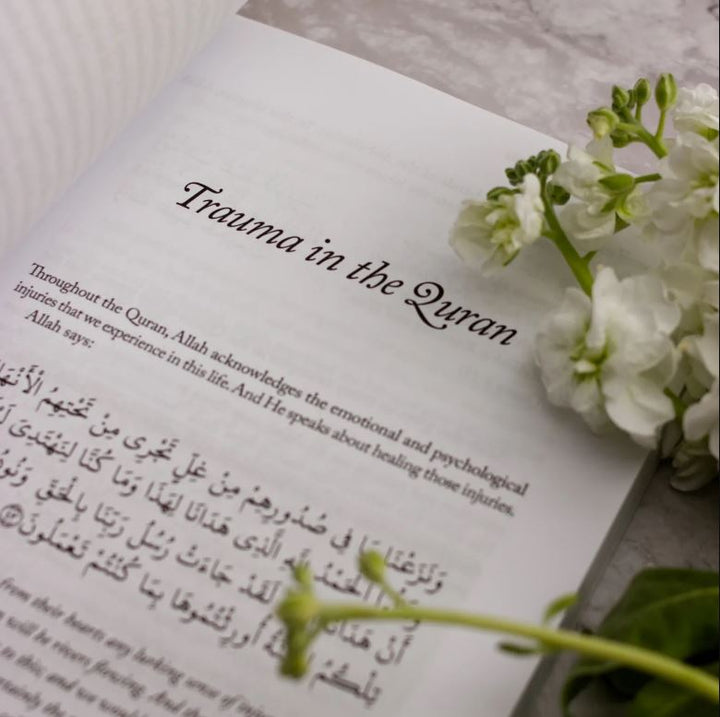 Trauma in the Quran
Throughout the Quran, Allah acknowledges the emotional and psychological
injuries that we experience in this life. And He speaks about healing those injuries.
Allah says:
وَنَزَعْنَا فِى صُدُورِهِمْ مِنْ غِلٍّ تَجْرِى مِنْ تَحْتِهِمُ
الْحَمْدُ الَّذِى هَدَانَا لِهَذَا وَمَا كُنَّا لِنَهْتَدِىَ
أَنْ لَقَدْ جَاءَتْ رُسُلُ رَبِّنَا بِالْحَقِّ
تِلْكُمُ أُورِثْتُمُوهَا بِمَا كُنْتُمْ تَعْمَلُونَ
from their hearts any lurking sense of
will be rivers flowing. And
to this: and we